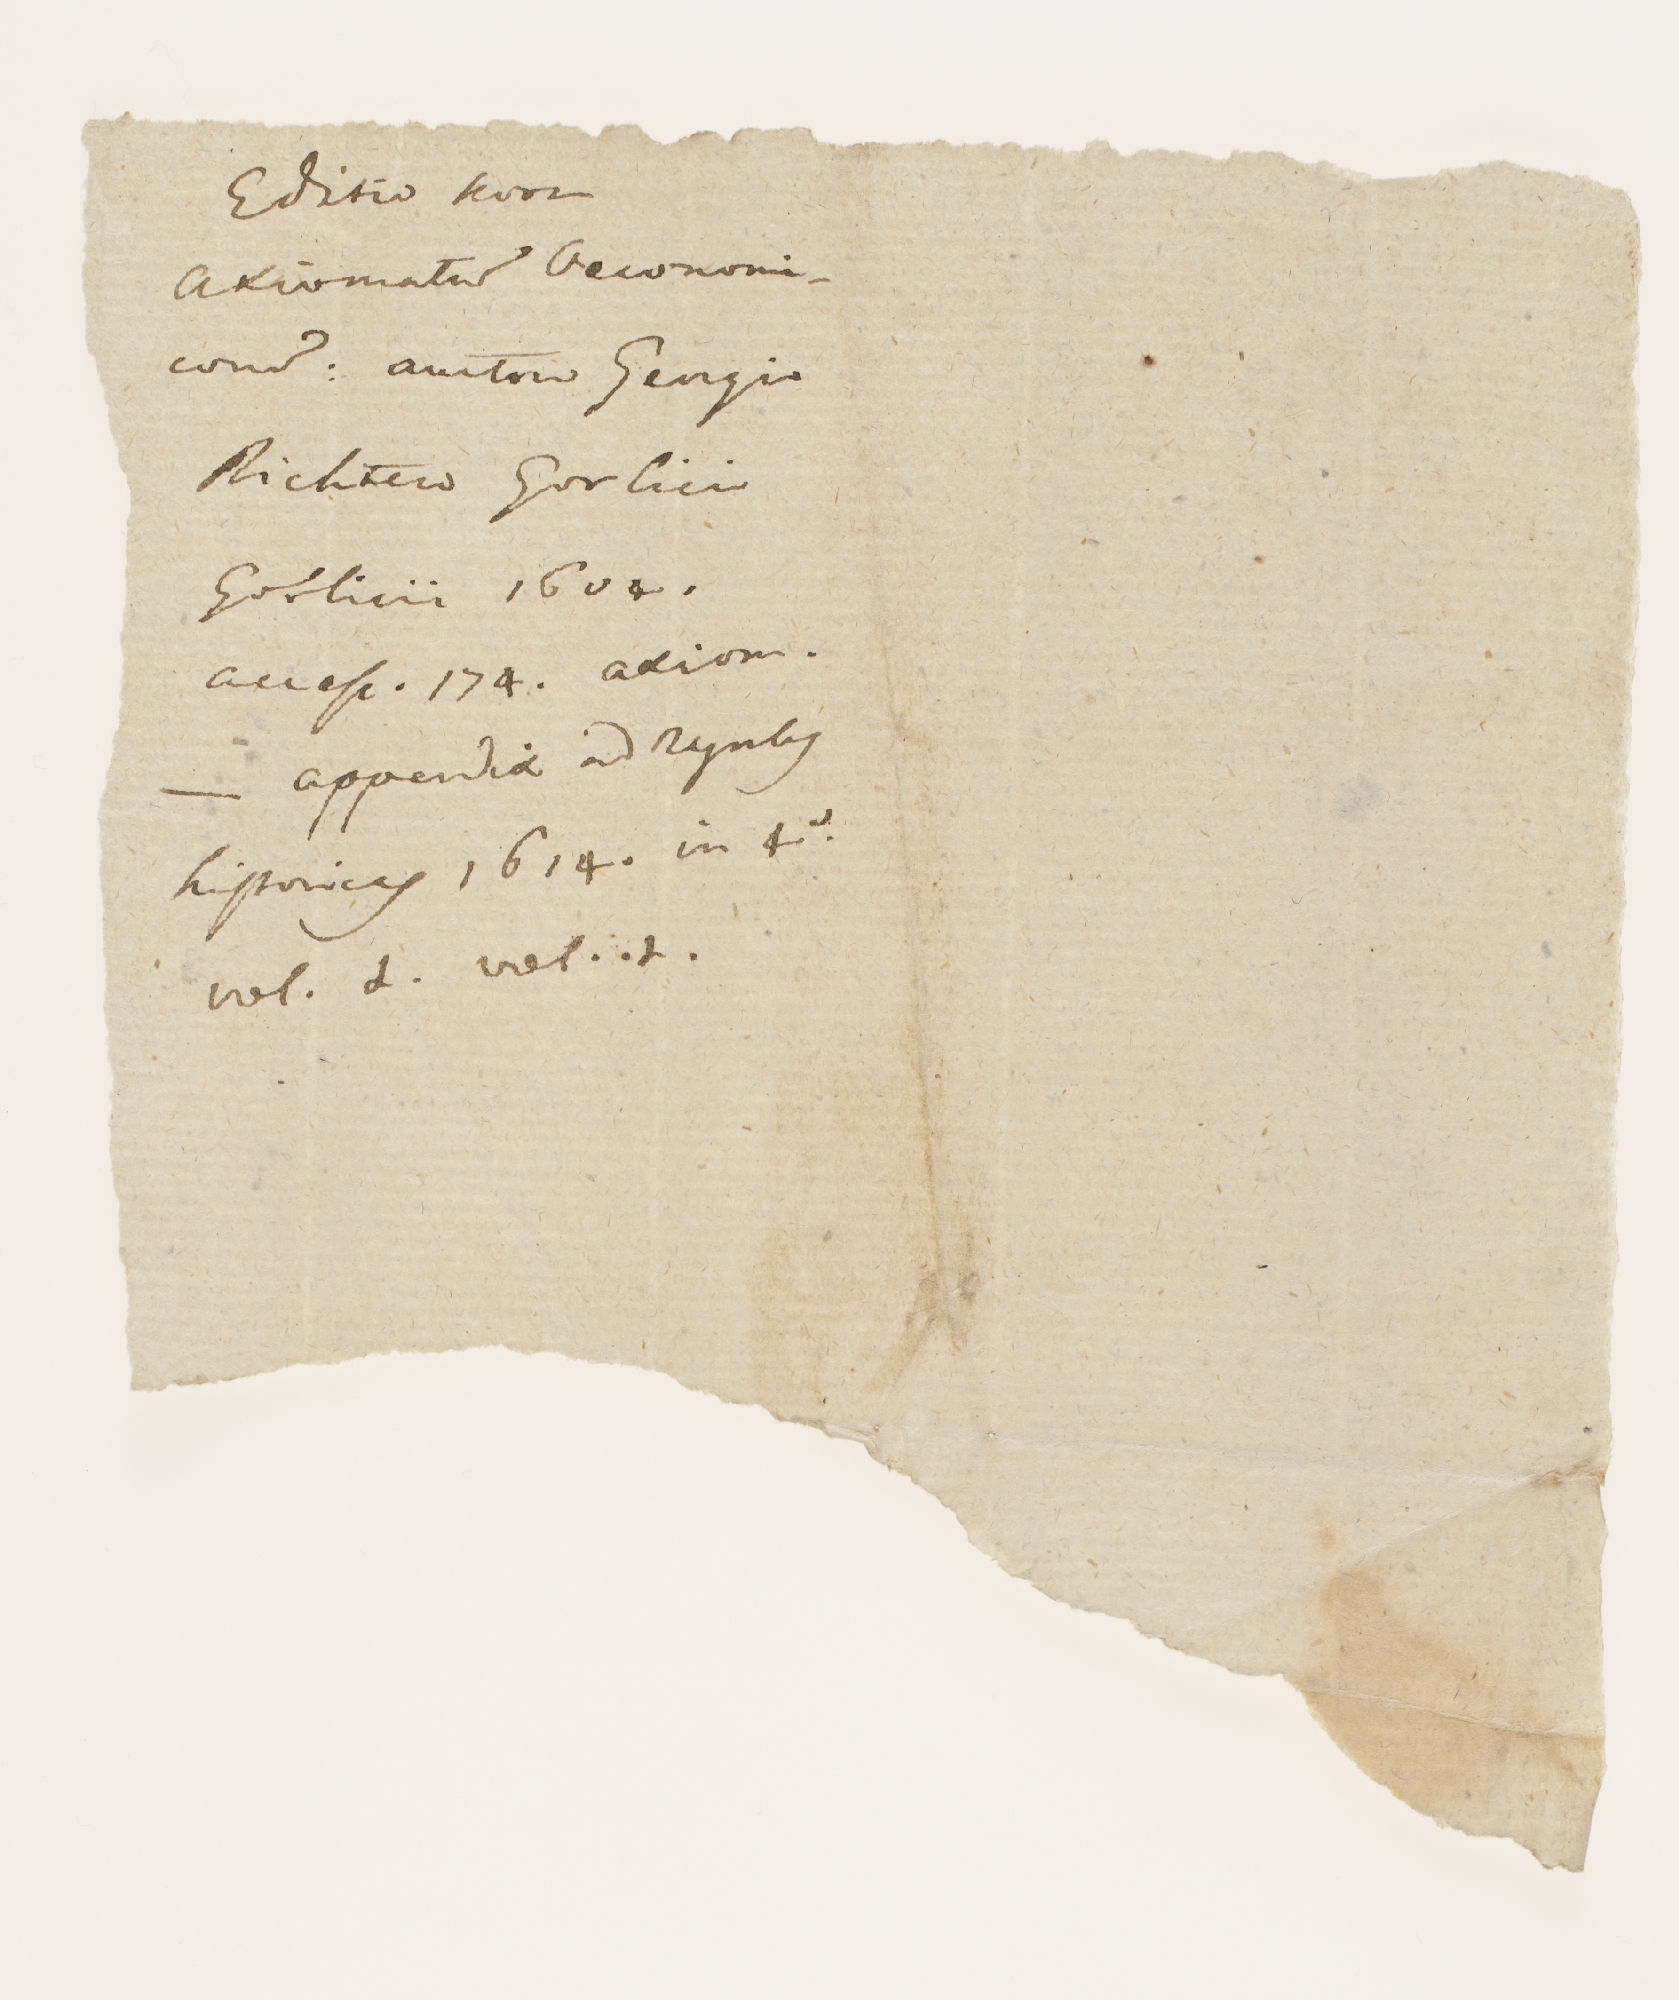 Editio nova
Axiomatū Oeconomi-
corū: auctore Georgio
Richtero Gorlicii
Gorlicii 1604.
access. 174. axiom.
— appendix ad Regulas
historicas 1614. in 4º.
vol. 2. vol. 2.